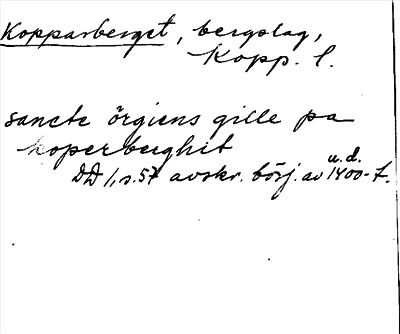 Kopparberget, bergslag,
Kopp. l.
sancte örgiens gille pa
koperberghit
u. d.
DD 1, s. 57 avskr. börj. av 1400-t.